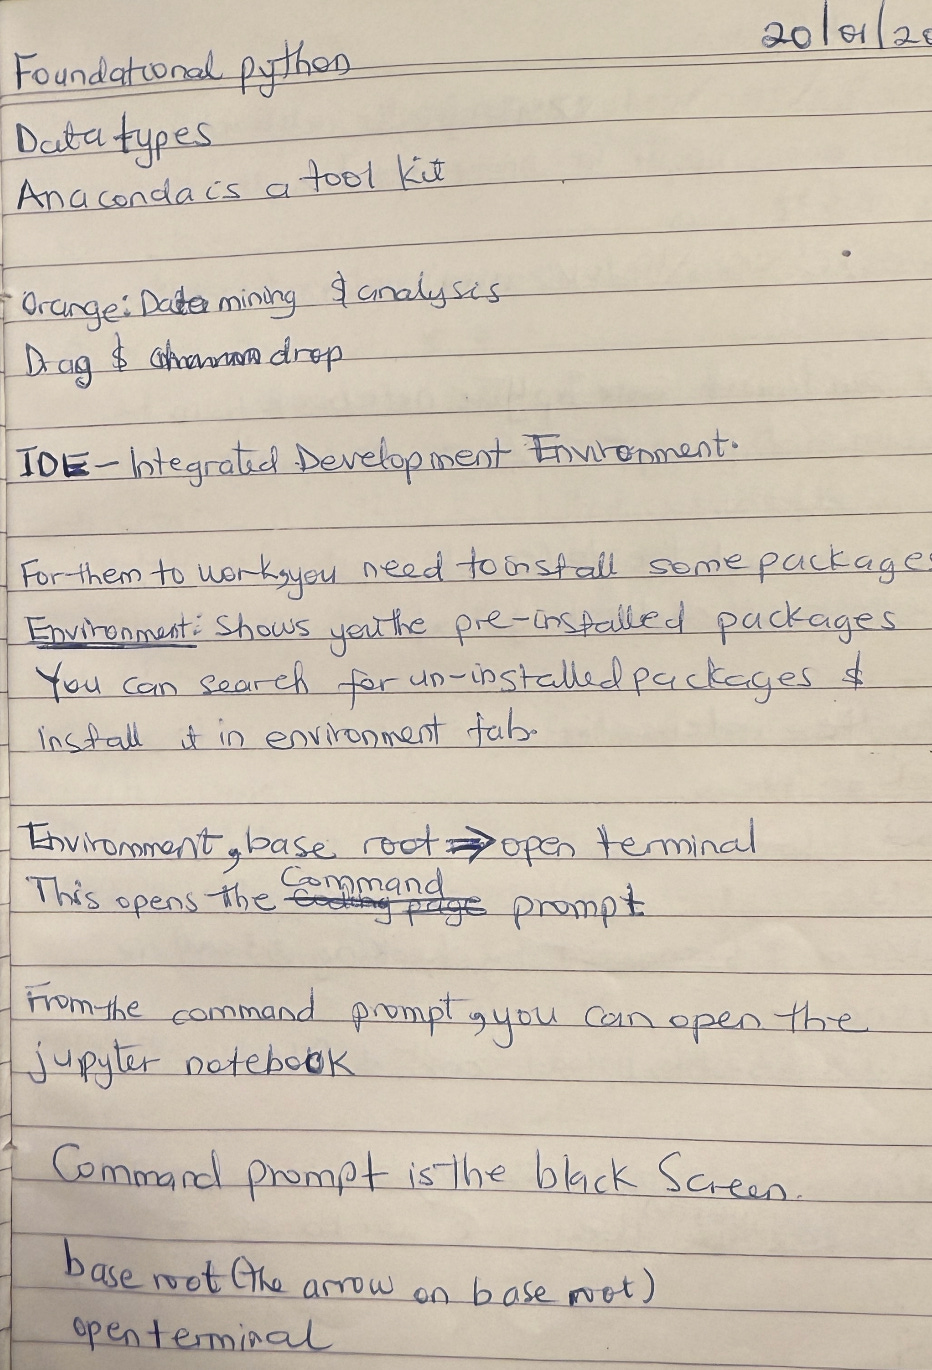 20/01/20
Foundational python
Data types
Anaconda is a tool kit
Orange: Data mining & analysis
Drag & drop
IDE - Integrated Development Environment.
For them to work, you need to install some package
Environment: Shows you the pre-installed packages
You can search for un-installed packages &
install it in environment tab.
Environment, base root ⇒ open terminal
Command
This opens the coding page prompt
From the command prompt, you can open the
jupyter notebook
Command prompt is the black Screen.
base root (the arrow on base root)
open terminal